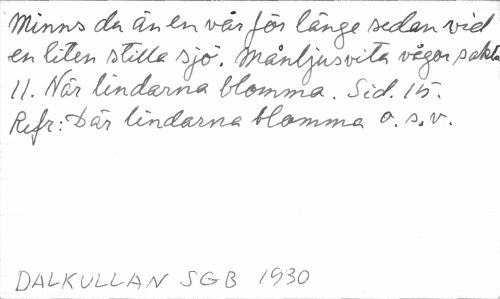 Minns du än en vår för länge sedan vid
en liten stilla sjö. Månljusvita vågor sakta
11. När lindarna blomma. Sid. 15.
Refr: Där lindarna blomma o.s.v.
DALKULLAN SGB 1930